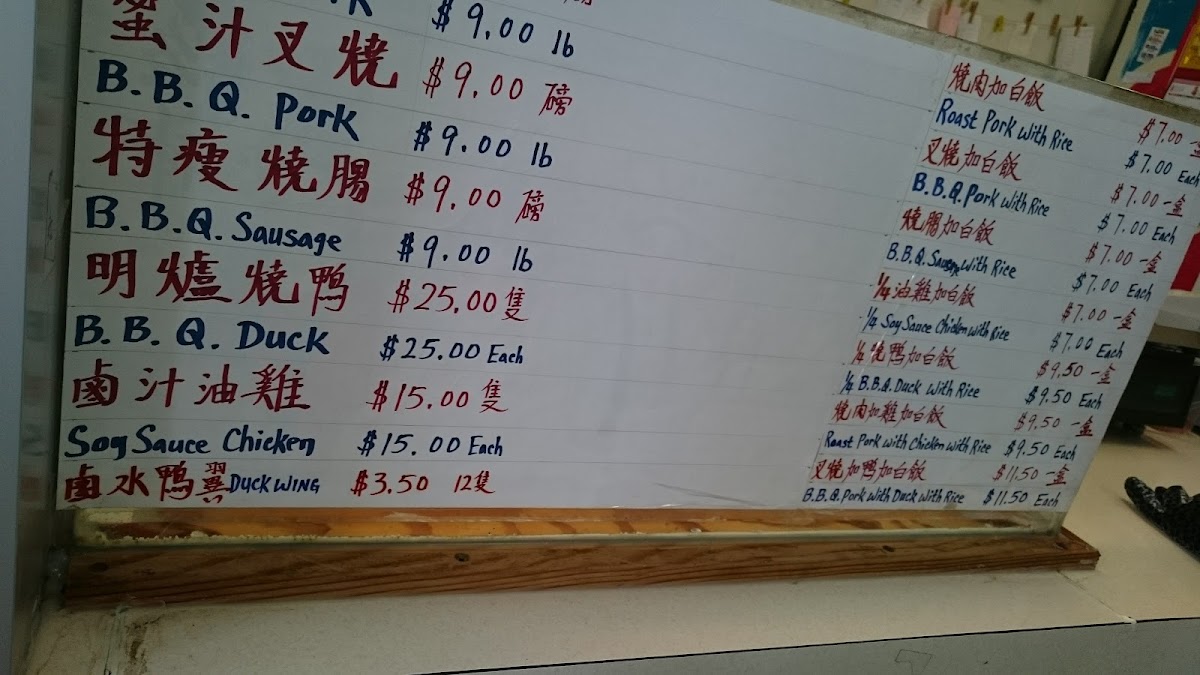 $9.00 lb
蜜汁叉燒 $9.00 磅
B.B.Q. Pork $9.00 lb
特瘦燒腸 $9.00 磅
B.B.Q. Sausage $9.00 lb
明爐燒鴨 $25.00 隻
B.B.Q. Duck $25.00 Each
鹵汁油雞 $15.00 隻
Soy Sauce Chicken $15.00 Each
鹵水鴨翼 DUCK WING $3.50 12隻
燒肉加白飯 $7.00 一盒
Roast Pork with Rice $7.00 Each
叉燒加白飯 $7.00 一盒
B.B.Q. Pork with Rice $7.00 Each
燒腸加白飯 $7.00 一盒
B.B.Q. Sausage with Rice $7.00 Each
1/4 油雞加白飯 $7.00 一盒
1/4 Soy Sauce Chicken with Rice $7.00 Each
1/4 燒鴨加白飯 $9.50 一盒
1/4 B.B.Q. Duck with Rice $9.50 Each
燒肉加雞加白飯 $9.50 一盒
Roast Pork with Chicken with Rice $9.50 Each
叉燒加鴨加白飯 $11.50 一盒
B.B.Q. Pork with Duck with Rice $11.50 Each